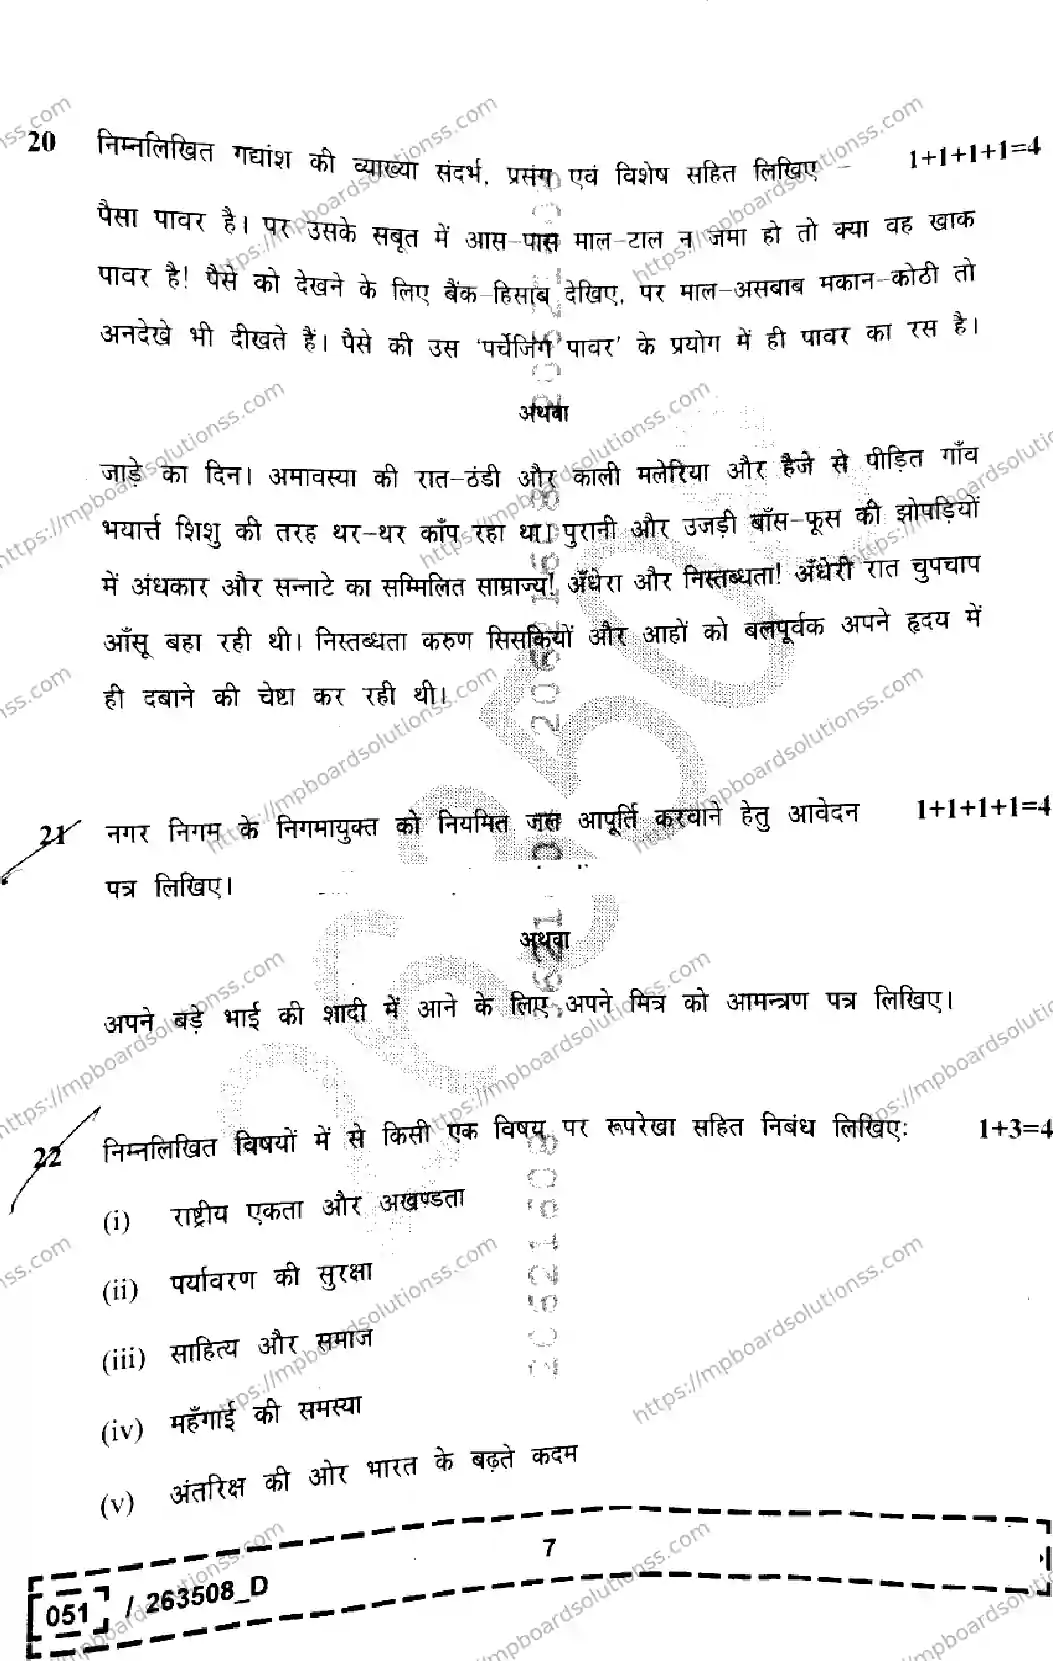 20 निम्नलिखित गद्यांश की व्याख्या संदर्भ, प्रसंग एवं विशेष सहित लिखिए – 1+1+1+1=4
पैसा पावर है। पर उसके सबूत में आस-पास माल-टाल न जमा हो तो क्या वह खाक
पावर है! पैसे को देखने के लिए बैंक-हिसाब देखिए, पर माल-असबाब मकान-कोठी तो
अनदेखे भी दीखते हैं। पैसे की उस 'पर्चेजिंग पावर' के प्रयोग में ही पावर का रस है।
अथवा
जाड़े का दिन। अमावस्या की रात-ठंडी और काली मलेरिया और हैजे से पीड़ित गाँव
भयार्त्त शिशु की तरह थर-थर काँप रहा था। पुरानी और उजड़ी बाँस-फूस की झोपड़ियों
में अंधकार और सन्नाटे का सम्मिलित साम्राज्य! अँधेरा और निस्तब्धता! अँधेरी रात चुपचाप
आँसू बहा रही थी। निस्तब्धता करुण सिसकियों और आहों को बलपूर्वक अपने हृदय में
ही दबाने की चेष्टा कर रही थी।
21 नगर निगम के निगमायुक्त को नियमित जल आपूर्ति करवाने हेतु आवेदन 1+1+1+1=4
पत्र लिखिए।
अथवा
अपने बड़े भाई की शादी में आने के लिए अपने मित्र को आमन्त्रण पत्र लिखिए।
22 निम्नलिखित विषयों में से किसी एक विषय पर रूपरेखा सहित निबंध लिखिए: 1+3=4
(i) राष्ट्रीय एकता और अखण्डता
(ii) पर्यावरण की सुरक्षा
(iii) साहित्य और समाज
(iv) महँगाई की समस्या
(v) अंतरिक्ष की ओर भारत के बढ़ते कदम
7
051 / 263508_D
https://mpboardsolutionss.com